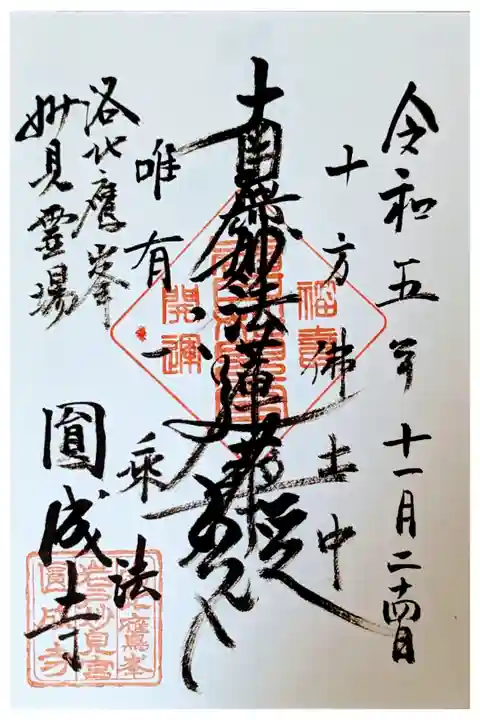 令和五年十一月二十四日
十方佛土中
南無妙法蓮華経
唯有一乗法
福壽
開運
洛北鷹峯
妙見霊場
圓成寺
鷹峯
岩戸妙見宮
圓成寺